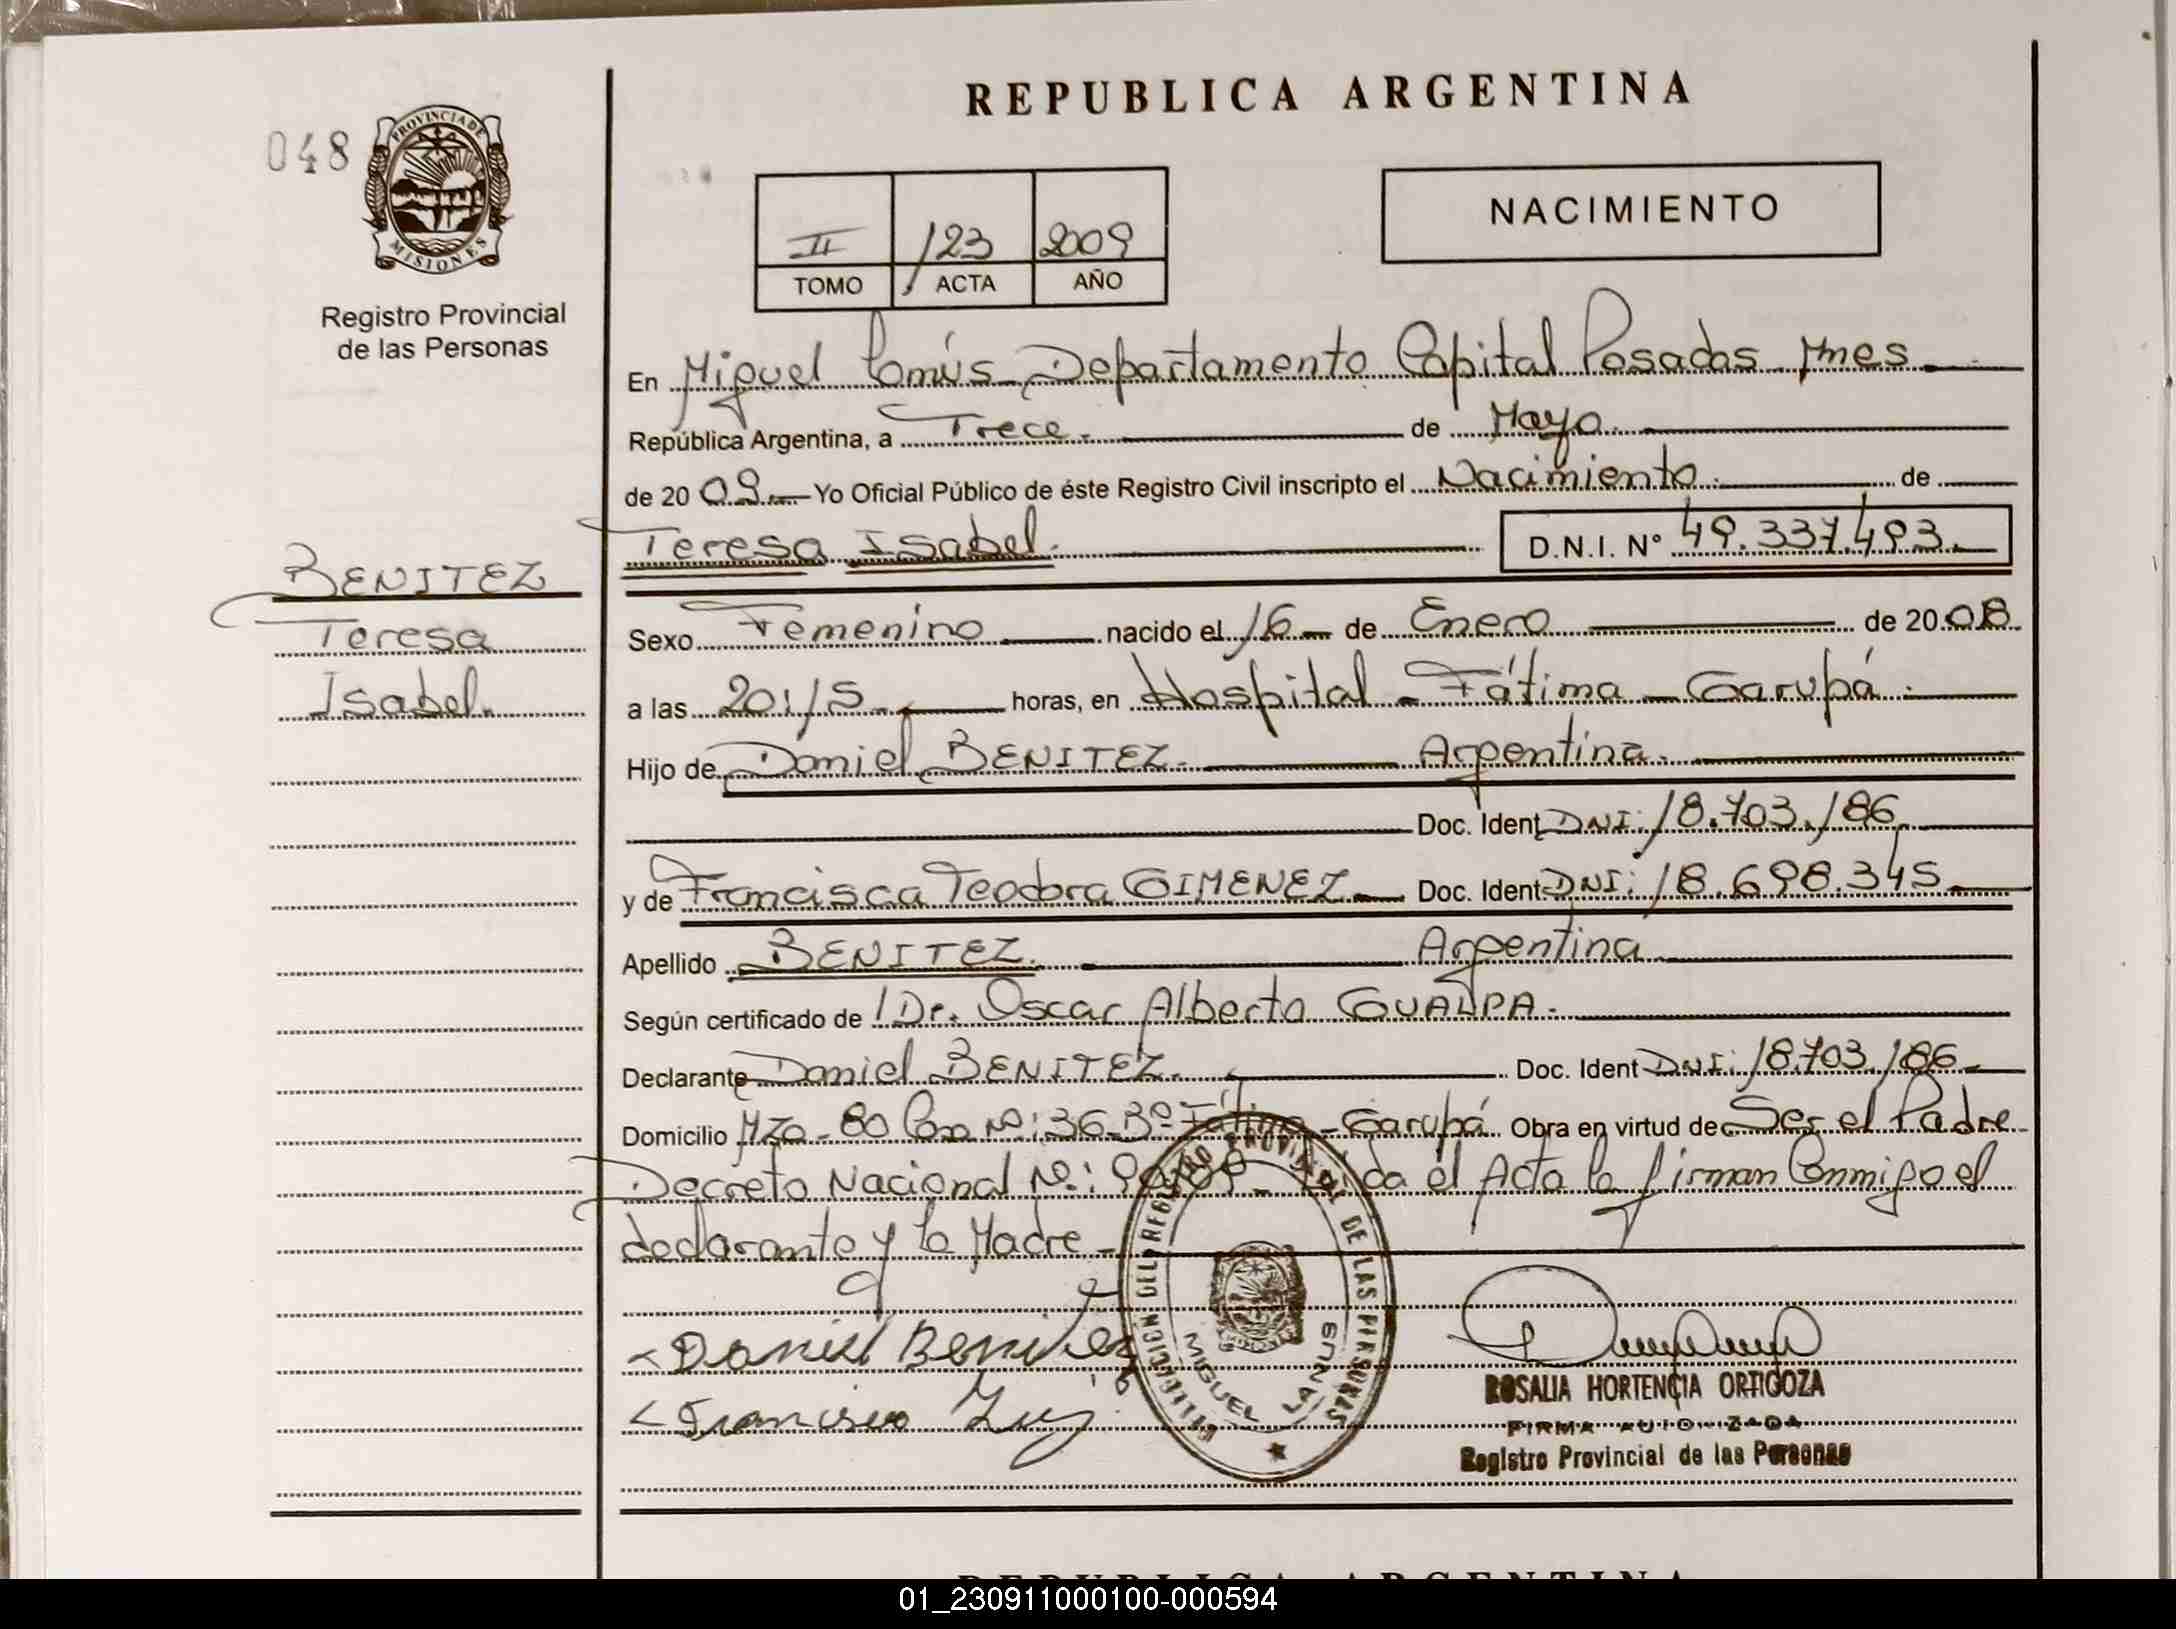 REPUBLICA ARGENTINA
048
PROVINCIA DE
MISIONES
Registro Provincial
de las Personas
II 123 2009
TOMO ACTA AÑO
NACIMIENTO
En Miguel Lanús Departamento Capital Posadas Mnes
República Argentina, a Trece de Mayo
de 2009 Yo Oficial Público de éste Registro Civil inscripto el Nacimiento de
Teresa Isabel. D.N.I. N° 49.337.493.
BENITEZ
Teresa
Isabel.
Sexo Femenino nacido el 16 de Enero de 2008
a las 20:15 horas, en Hospital - Fátima - Garupá.
Hijo de Daniel BENITEZ. Argentina.
Doc. Ident DNI: 18.703.186
y de Francisca Teodora GIMENEZ Doc. Ident. DNI: 18.698.345
Apellido BENITEZ. Argentina
Según certificado de Dr. Oscar Alberto
Declarante Daniel BENITEZ. Doc. Ident DNI: 18.703.186
Domicilio Mza - 80 Casa Nº: 36 Bº Fátima - Garupá Obra en virtud de Ser el Padre
Decreto Nacional Nº: Leída el Acta la firman Conmigo el
declarante y la Madre
Daniel Benitez
DELEGACIÓN DEL REGISTRO PROVINCIAL DE LAS PERSONAS
MIGUEL LANUS
ROSALIA HORTENCIA ORTIGOZA
FIRMA AUTORIZADA
Registro Provincial de las Personas
REPUBLICA ARGENTINA
01_230911000100-000594